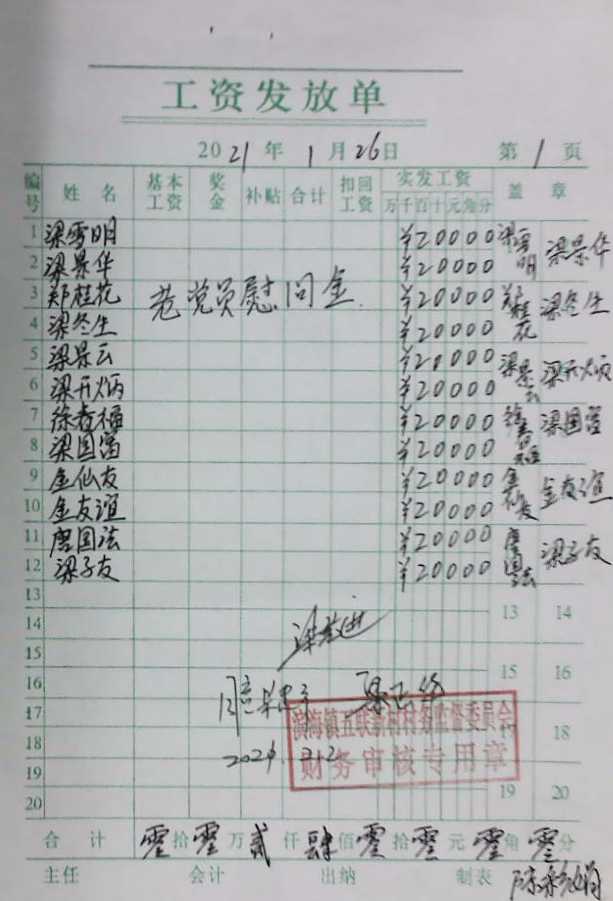 工资发放单
2021年1月26日 第1页
编号 姓名 基本工资 奖金 补贴 合计 扣回工资 实发工资 盖章
万千百十元角分
1 梁雪明 ¥20000 梁雪明
2 梁景华 ¥20000 梁景华
3 郑桂花 老党员慰问金 ¥20000 郑桂花
4 梁冬生 ¥20000 梁冬生
5 梁景云 ¥20000 梁景云
6 梁开炳 ¥20000 梁开炳
7 徐春福 ¥20000
8 梁国富 ¥20000 梁国富
9 金仙友 ¥20000 金仙友
10 金友谊 ¥20000 金友谊
11 唐国法 ¥20000 唐国法
12 梁子友 ¥20000 梁子友
13 13 14
14
15
16 15 16
17 滨海镇五联新村村务监督委员会
18 18
财务审核专用章
19 19 20
20
合计 零拾零万贰仟肆佰零拾零元零角零分
主任 会计 出纳 制表